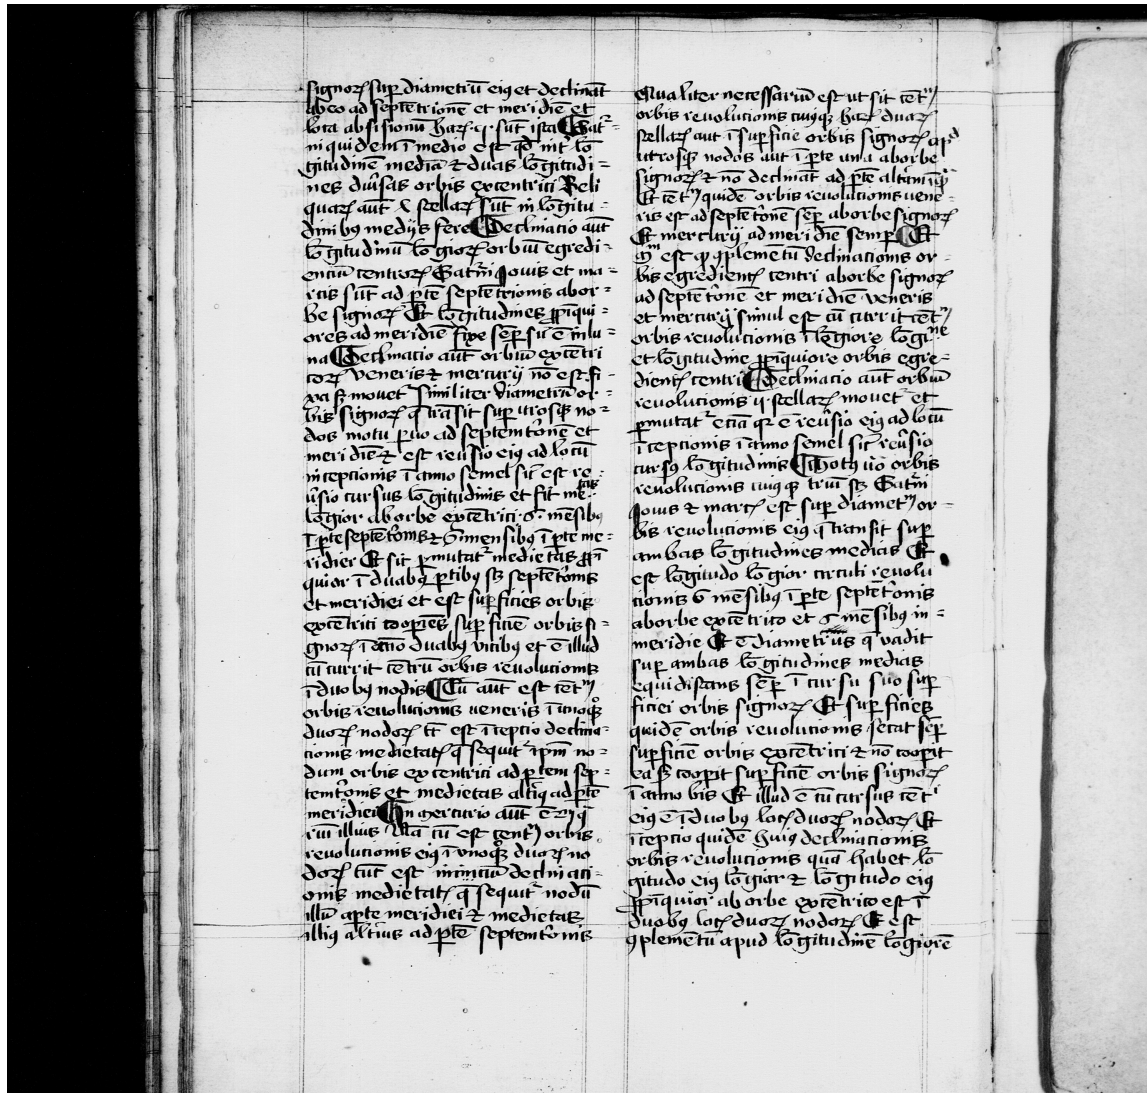 signoꝝ suꝑ diametrū eiꝰ et declināt
abeo ad septētrionē et meridiē et
loca absisionū haꝝ · sūt ista Sat᷑ =
ni quidem ī medio est qd̄ int̄ lō
gitudinē mediā ⁊ duas lōgitudi =
nes diu᷑sas orbis excentrici Reli
quaꝝ aūt stellaꝝ sūt in lōgitu =
dinibꝰ medijs fere Declinacio aūt
lōgitudinū lōgioꝝ orbiū egredi =
enciū centroꝝ Sat᷑ni Jouis et ma =
rtis sūt ad ꝑtē septētrionis abor =
be signoꝝ Et lōgitudines ꝓpīqui =
ores ad meridiē fixe sēꝑ sic ē in lu =
na Declinacio aūt orbiū excētri
coꝝ veneris ⁊ mercurij nō est fi =
xa sꝫ mouet᷑ Similiter diametrū or =
bis signoꝝ q̄ trāsit suꝑ utrosqꝫ no =
dos motu ꝑuo ad septemt᷑onē et
meridiē ⁊ est reu᷑sio eiꝰ ad locū
inceptionis ī anno semel sic̄ est re =
u᷑sio cursus lōgitudinis et fit
lōgior aborbe excētrici · 6 · mēsibꝰ
ī ꝑte septēt᷑onis ⁊ 6 mensibꝰ ī ꝑte me =
ridiei Et sic ꝑmutat᷑ medietas ꝓpī
quior ī duabꝰ ꝑtibꝰ sꝫ septēt᷑onis
et meridiei et est suꝑficies orbis
excētrici cooꝑiēs suꝑficiē orbis si =
gnoꝝ ī anno duabꝰ vicibꝰ et ē illud
cū currit cētrū orbis reuolucionis
ī duobꝰ nodis Cū aūt est cēt᷑ꝫ
orbis reuolucionis veneris ī unoqꝫ
duoꝝ nodoꝝ tc̄ est īceptio declina =
cionis medietatꝭ q̄ sequit᷑ ip̄m no =
dum orbis excentrici ad ꝑtem sep =
temt᷑onis et medietas altiꝰ ad ꝑtē
meridiei In mercurio aūt ē 9͂iꝰ
rū illius Nā cū est cent᷑ꝫ orbis
reuolucionis eiꝰ ī vnoqꝫ duoꝝ no
doꝝ tūc est iniciū declinaci =
onis medietatꝭ q̄ sequit᷑ nodū
illū aꝑte meridiei ⁊ medietas
illiꝰ alt᷑ius ad ꝑtē septemt᷑onis
Qualiter necessariū est ut sit cēt᷑ꝫ
orbis reuolucionis cuiꝰqꝫ haꝝ duaꝝ
stellaꝝ aut ī suꝑficie orbis signoꝝ apd
utrosqꝫ nodos aut ī ꝑte una aborbe
signoꝝ ⁊ nō declināt ad ꝑtē alt᷑am
Et cēt᷑ꝫ quidē orbis reuolucionis vene =
ris est ad septēt᷑onē sēꝑ aborbe signoꝝ
Et mercurij ad meridiē semꝑ Et
est qꝫ ꝯplementū declinacionis or =
bis egredientꝭ centri aborbe signoꝝ
ad septēt᷑onē et meridiē veneris
et mercurij simul est cū currit cēt᷑ꝫ
orbis reuolucionis ī lōgiore lōgi᷑ne
et lōgitudine ꝓpīquiore orbis egre =
dientꝭ centri Declinacio aūt orbiū
reuolucionis ij stellaꝝ mouet᷑ et
ꝑmutat᷑ eciā qꝛ ē reu᷑sio eiꝰ ad locū
īceptionis ī anno semel sic᷑ reu᷑sio
cursꝰ lōgitudinis Motꝰ u̅o orbis
reuolucionis cuiꝰqꝫ triū sꝫ Sat᷑ni
Jouis ⁊ martꝭ est suꝑ diamet᷑ꝫ or =
bis reuolucionis eiꝰ q̄ transit suꝑ
ambas lōgitudines medias Et
est lōgitudo lōgior circuli reuolu
cionis 6 mēsibꝰ ī ꝑte septēt᷑onis
aborbe excētrico et 6 mēsibꝰ in =
meridie Et ē diamet᷑ eiꝰ q̄ vadit
suꝑ ambas lōgitudines medias
equidistans sēꝑ ī cursu suo suꝑ
ficiei orbis signoꝝ Et suꝑficies
quidē orbis reuolucionis secat sēꝑ
suꝑficiē orbis excētrici ⁊ nō cooꝑit
ea sꝫ cooꝑit suꝑficiē orbis signoꝝ
ī anno bis Et illud ē cū cursus cēt᷑i
eiꝰ ē ī duobꝰ locꝭ duoꝝ nodoꝝ Et
īceptio quidē huiꝰ declinacionis
orbis reuolucionis qua habet lō
gitudo eiꝰ lōgior ⁊ lōgitudo eiꝰ
ꝓpīquior aborbe excētrico est ī
duobꝰ locꝭ duoꝝ nodoꝝ Et est
ꝯplementū apud lōgitudinē lōgiorē